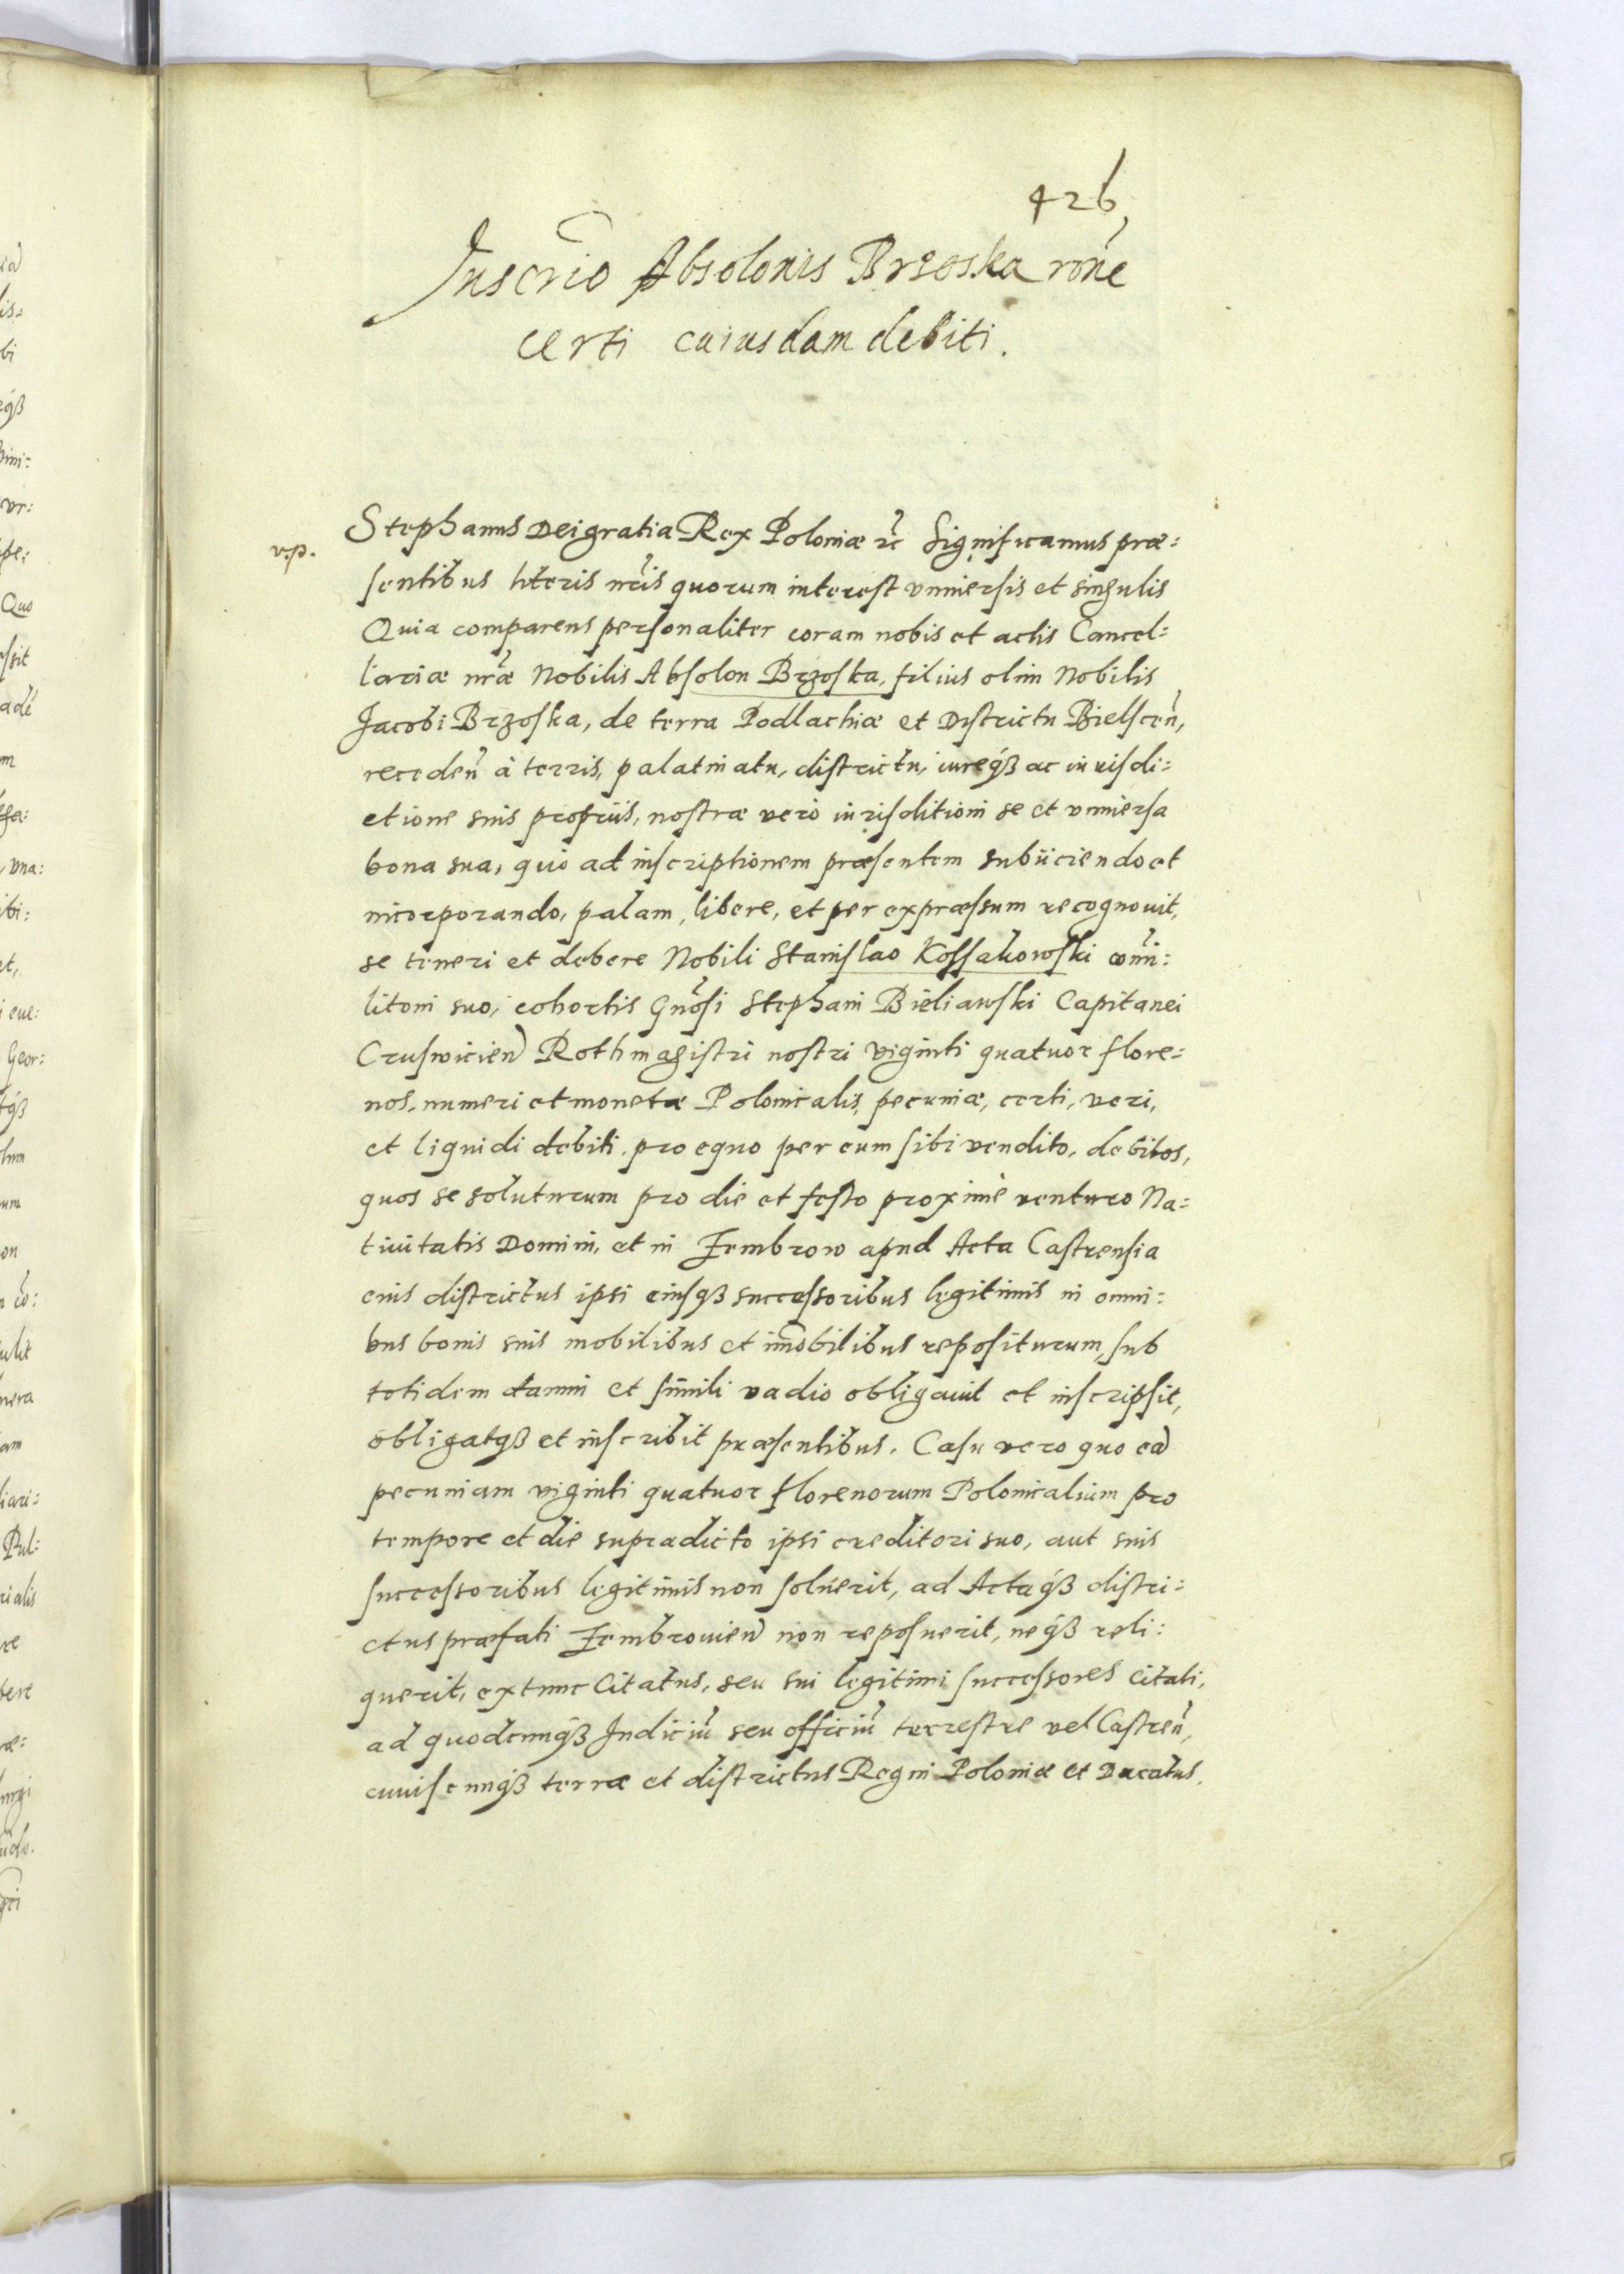 426,
Inscrio Absolonis Brzoska rone
certi cuiusdam debiti.
v.p.
Stephanus Dei gratia Rex Poloniæ ec̃ Significamus præ=
sentibus literis nris quorum interest vniuersis et singulis
Quia comparens personaliter coram nobis et actis Cancel=
lariæ nræ Nobilis Absolon Brzoska, filius olim Nobilis
Jacobi Brzoska, de terra Podlachiæ et Districtu Bielscen,
receden à terris, palatinatu, districtu, iureqß ac iurisdi=
ctione suis proprijs, nostræ verò iurisditioni se et vniuersa
bona sua, quò ad inscriptionem præsentem subijciendo et
incorporando, palam, libere, et per expræssum recognouit,
se teneri et debere Nobili Stanislao Kossakowski comi=
litoni suo, cohortis Gnosi Stephani Bieliawski Capitanei
Cruswicien Rothmagistri nostri viginti quatuor flore=
nos, numeri et monetæ Polonicalis, pecuniæ, certi, veri,
et liquidi debiti, pro equo per eum sibi vendito, debitos,
quos se soluturum pro die et festo proximè venturo Na=
tiuitatis Domini, et in Zembrow apud Acta Castrensia
eius districtus ipsi eiusqß successoribus legitimis in omni=
bus bonis suis mobilibus et imobilibus repositurum, sub
totidem damni et simili vadio obligauit et inscripsit,
obligatqß et inscribit præsentibus. Casu vero quo ea
pecuniam viginti quatuor florenorum Polonicalium pro
tempore et die supradicto ipsi creditori suo, aut suis
successoribus legitimis non soluerit, ad Actaqß distri=
ctus præfati Zembrouien non reposuerit, neqß reli=
querit, extunc Citatus, seu sui legitimi successores citati,
ad quodcunqß Iudiciu seu officiu terrestre vel Castren,
cuiuscunqß terræ et districtus Regni Poloniæ et Ducatus